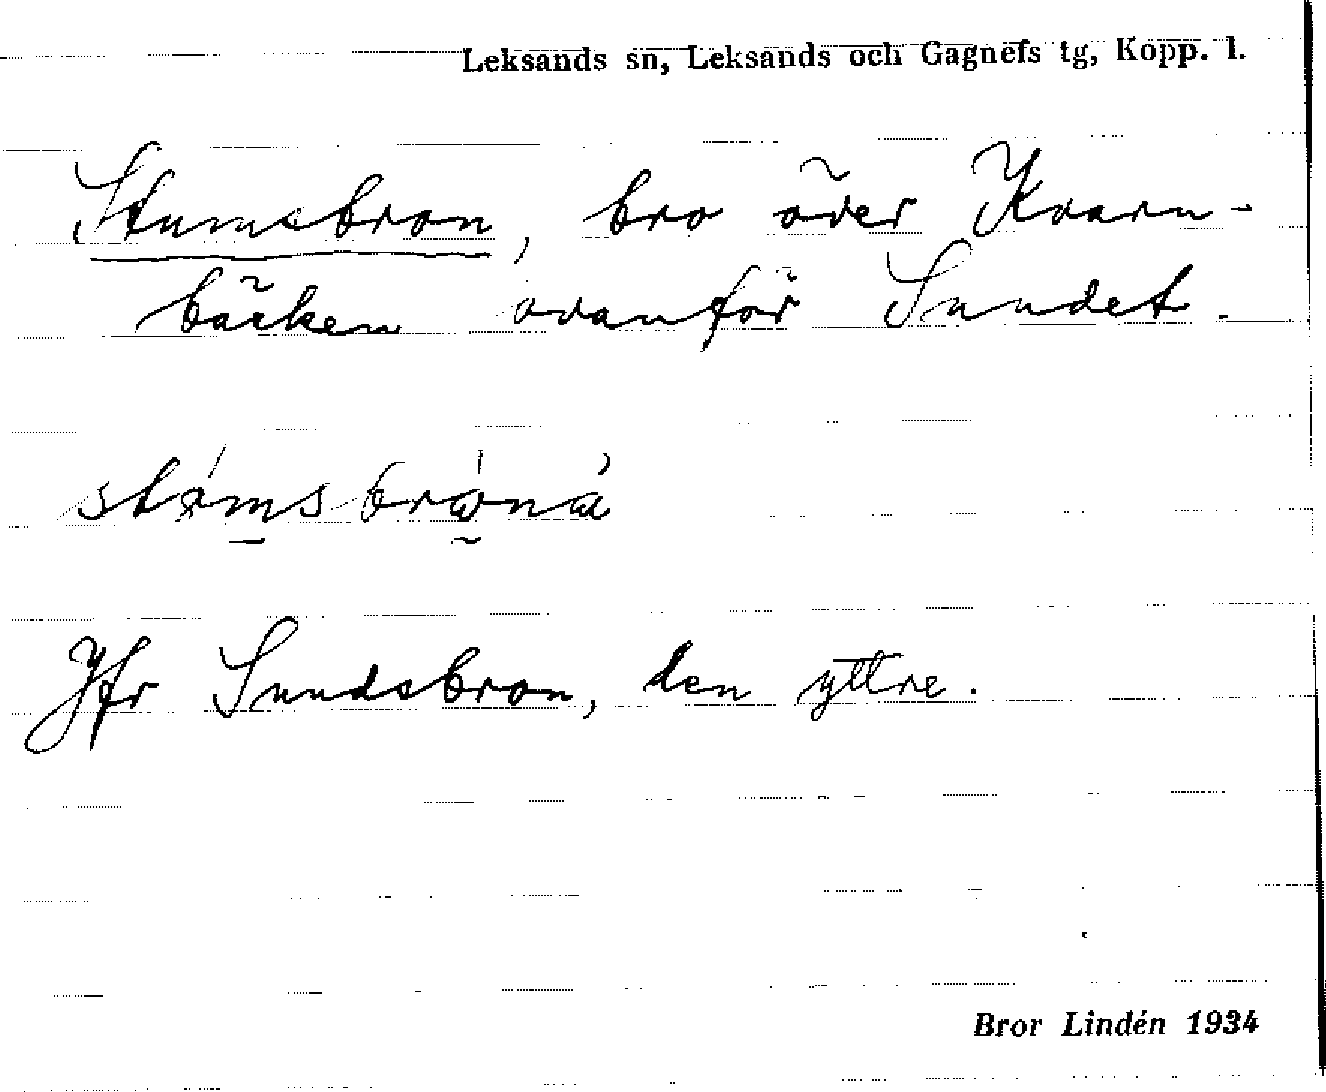 Leksands sn, Leksands och Gagnefs tg, Kopp. l.
Stumsbron, bro över Kvarn-
bäcken ovanför Sundet.
Jfr Sundsbron, den yttre.
Bror Lindén 1934